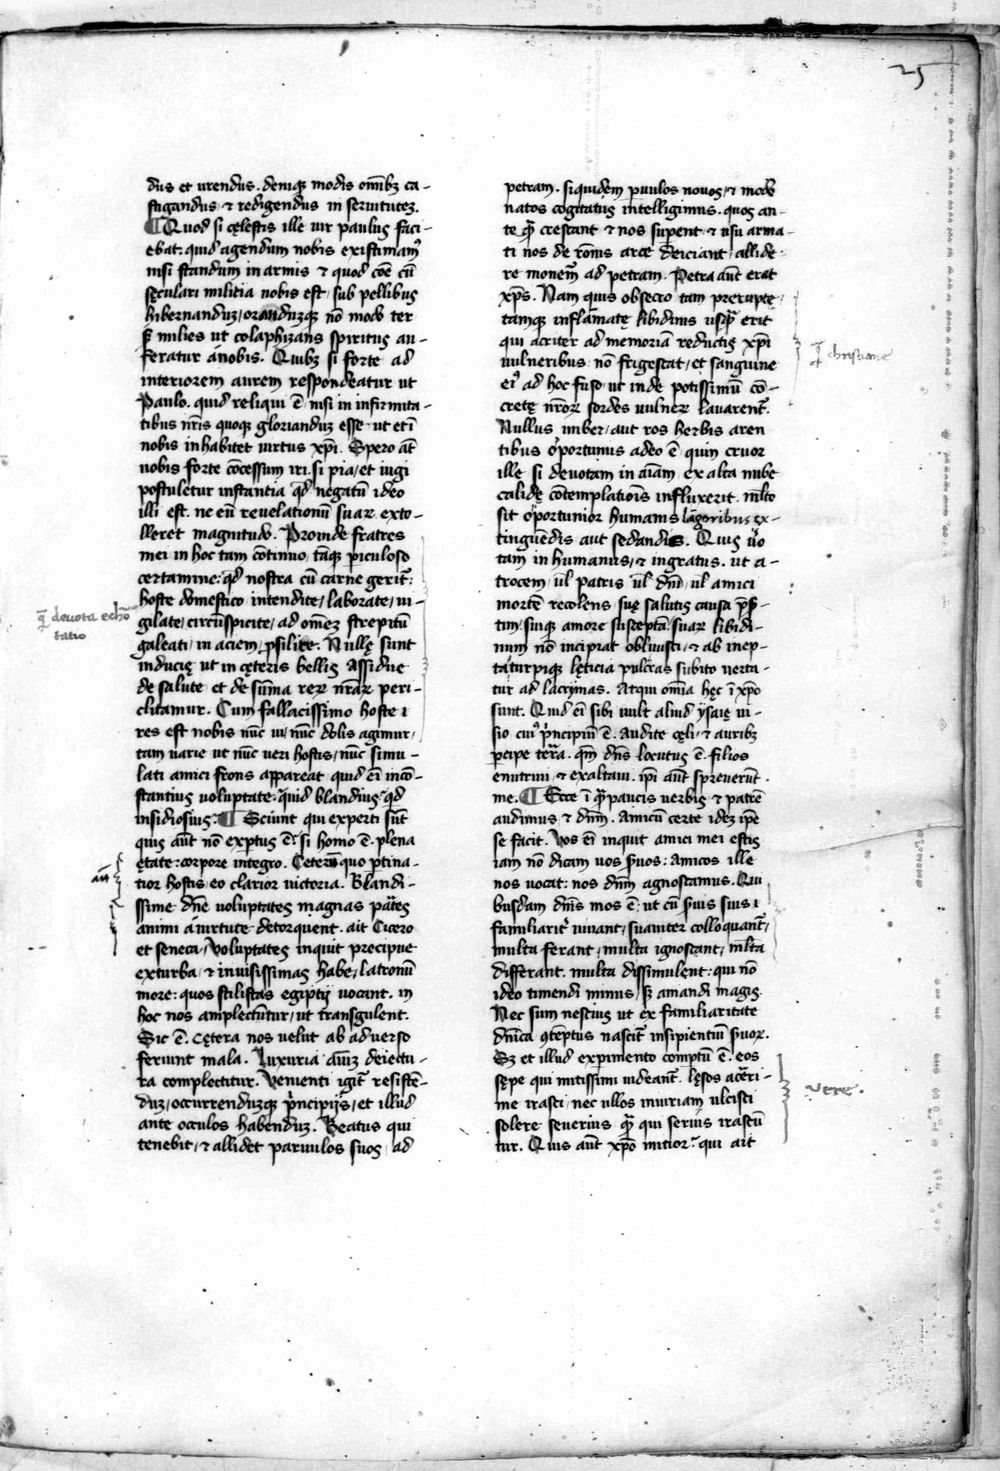 25
dus et urendus. deniqꝫ modis om̅ibꝫ ca-
stigandus ⁊ redigendus in seruituteꝫ.
¶ Quod si cęlestis ille uir paulus faci-
ebat: quid agendum nobis existimamꝰ
nisi standum in armis ⁊ quod co̅e cu̅
sęculari militia nobis est, sub pellibus
hibernanduꝫ, oranduꝫqꝫ no̅ modo ter
sꝫ milies ut colaphizans spiritus au-
feratur a nobis. Quibꝫ si forte ad
interiorem aurem respondeatur ut
Paulo. quid reliqui e̅ nisi in infirmita-
tibus nr̅is quoqꝫ glorianduꝫ esse ut et i̅
nobis inhabitet uirtus xp̅i. Spero at̅
nobis forte co̅cessum iri. si pia, et iugi
postuletur instantia qd̅ negatu̅ ideo
illi est. ne eu̅ reuelationu̅ suaꝝ exto-
lleret magnitudo. Proinde fratres
mei in hoc tam co̅tinuo, ta̅qꝫ ꝑiculoso
certamine: qd̅ nostra cu̅ carne gerit᷑:
hoste domestico intendite, laborate, ui-
gilate, circu̅spicite, ad om̅eꝫ strepitu̅
galeati, in aciem, ꝓsilite. Nullę sunt
inducię ut in cęteris bellis Assidue
de salute et de su̅ma reꝝ nr̅aꝝ peri-
clitamur. Cum fallacissimo hoste i
res est nobis nu̅c ui, nu̅c dolis agimur,
tam uarie ut nu̅c ueri hostis, nu̅c simu-
lati amici frons appareat quid ei̅ inco̅-
stantius uoluptate: quid blandius qd̅
insidiosius: ¶ Sciunt qui experti su̅t
quis aut̅ no̅ exꝑtus e̅ si homo e̅. plena
ętate: corpore integro. Ceteru̅ quo ꝑtina-
tior hostis, eo clarior uictoria. Blandi-
ssime dn̅e uoluptates magnas partes
animi a uirtute detorquent. ait Cicero
et seneca, Voluptates inquit precipue
exturba ⁊ inuisissimas habe, latronu̅
more: quos stilistas egiptij uocant. in
hoc nos amplectu̅tur, ut transgulent.
Sic e̅. cętera nos uelut ab aduerso
feriunt mala. Luxuria aut̅ deiectu-
ra complectitur. Venienti igit᷑ resiste̅-
duꝫ, occurrenduꝫqꝫ pⁱncipijs, et illud
ante oculos habenduꝫ. Beatus qui
tenebit, ⁊ allidet paruulos suos, ad
petram. siquidem ꝑuulos nouos, ⁊ modo
natos cogitatus intelligimus. quos an-
te qꝫ crescant ⁊ nos suꝑent ⁊ usu arma-
ti nos de ro̅nis arce deiciant, allide-
re monemꝰ ad petram. Petra aut̅ erat
xp̅s. Nam quis obsecro tam preruptę,
tamqꝫ inflamatę libidinis usqꝫ erit
qui acriter ad memoria reductis xp̅i
uulneribus no̅ frigescat, et sanguine
eiꝰ ad hoc fuso, ut inde potissimu̅ co̅-
cretę nr̅oꝝ sordes uulneꝝ lauarent᷑.
Nullus imber, aut ros herbis aren-
tibus oportunus adeo e̅ quin cruor
ille si deuotam in ai̅am, ex alta nube
calidę co̅templatio̅is influxerit. m̅lto
sit oportunior humanis la̅goribus ex-
tingue̅dis aut sedandis. Quis uo̅
tam inhumanus, ⁊ ingratus. ut a-
trocem ul̅ patris ul̅ dn̅i ul̅ amici
morte̅ recolens, suę salutis causa
tim, suiqꝫ amore suscepta̅ suaꝝ libidi-
num no̅ incipiat obliuisci, ⁊ ab inep-
ta turpiqꝫ lęticia pulcras subito uerta-
tur ad lacrymas. Atqui om̅ia hęc i̅ xp̅o
sunt. Quid ei̅ sibi uult aliud ysaię ui-
sio cuiꝰ pⁱncipiu̅ e̅. Audite cęli ⁊ auribꝫ
ꝑcipe te̅ra. qm̅ dn̅s locutus e̅. filios
enutriui ⁊ exaltaui. ip̅i aut̅ spreueru̅t
me. ¶ Ecce i̅ qꝫ paucis uerbis ⁊ patre̅
audimus ⁊ dn̅m. Amicu̅ certe ideꝫ ip̅e
se facit. Vos ei̅ inquit amici mei estis
iam no̅ dicam uos s̅uos: Amicos ille
nos uocat: nos dn̅m agnoscamus. Qui
busdam dn̅is mos e̅ ut cu̅ s̅uis suis i
familiarit᷑ uiuant, suauiter colloquant᷑,
multa ferant, multa ignoscant, m̅lta
differant. multa dissimulent: qui no̅
ideo timendi minus, sꝫ amandi magis.
Nec sum nescius ut ex familiaritate
dn̅ica ꝯte̅ptus nascit᷑ insipientiu̅ s̅uoꝝ.
Sꝫ et illud exꝑimento comptu̅ e̅. eos
sępe qui mitissimi uideant᷑. lęsos acerri-
me irasci, nec ullos iniuriam ulcisci
solere seuerius qꝫ qui serius irascu̅
tur. Quis aut̅ xp̅o mitior? qui ait
christiane
deuota exho
tatio
vere.